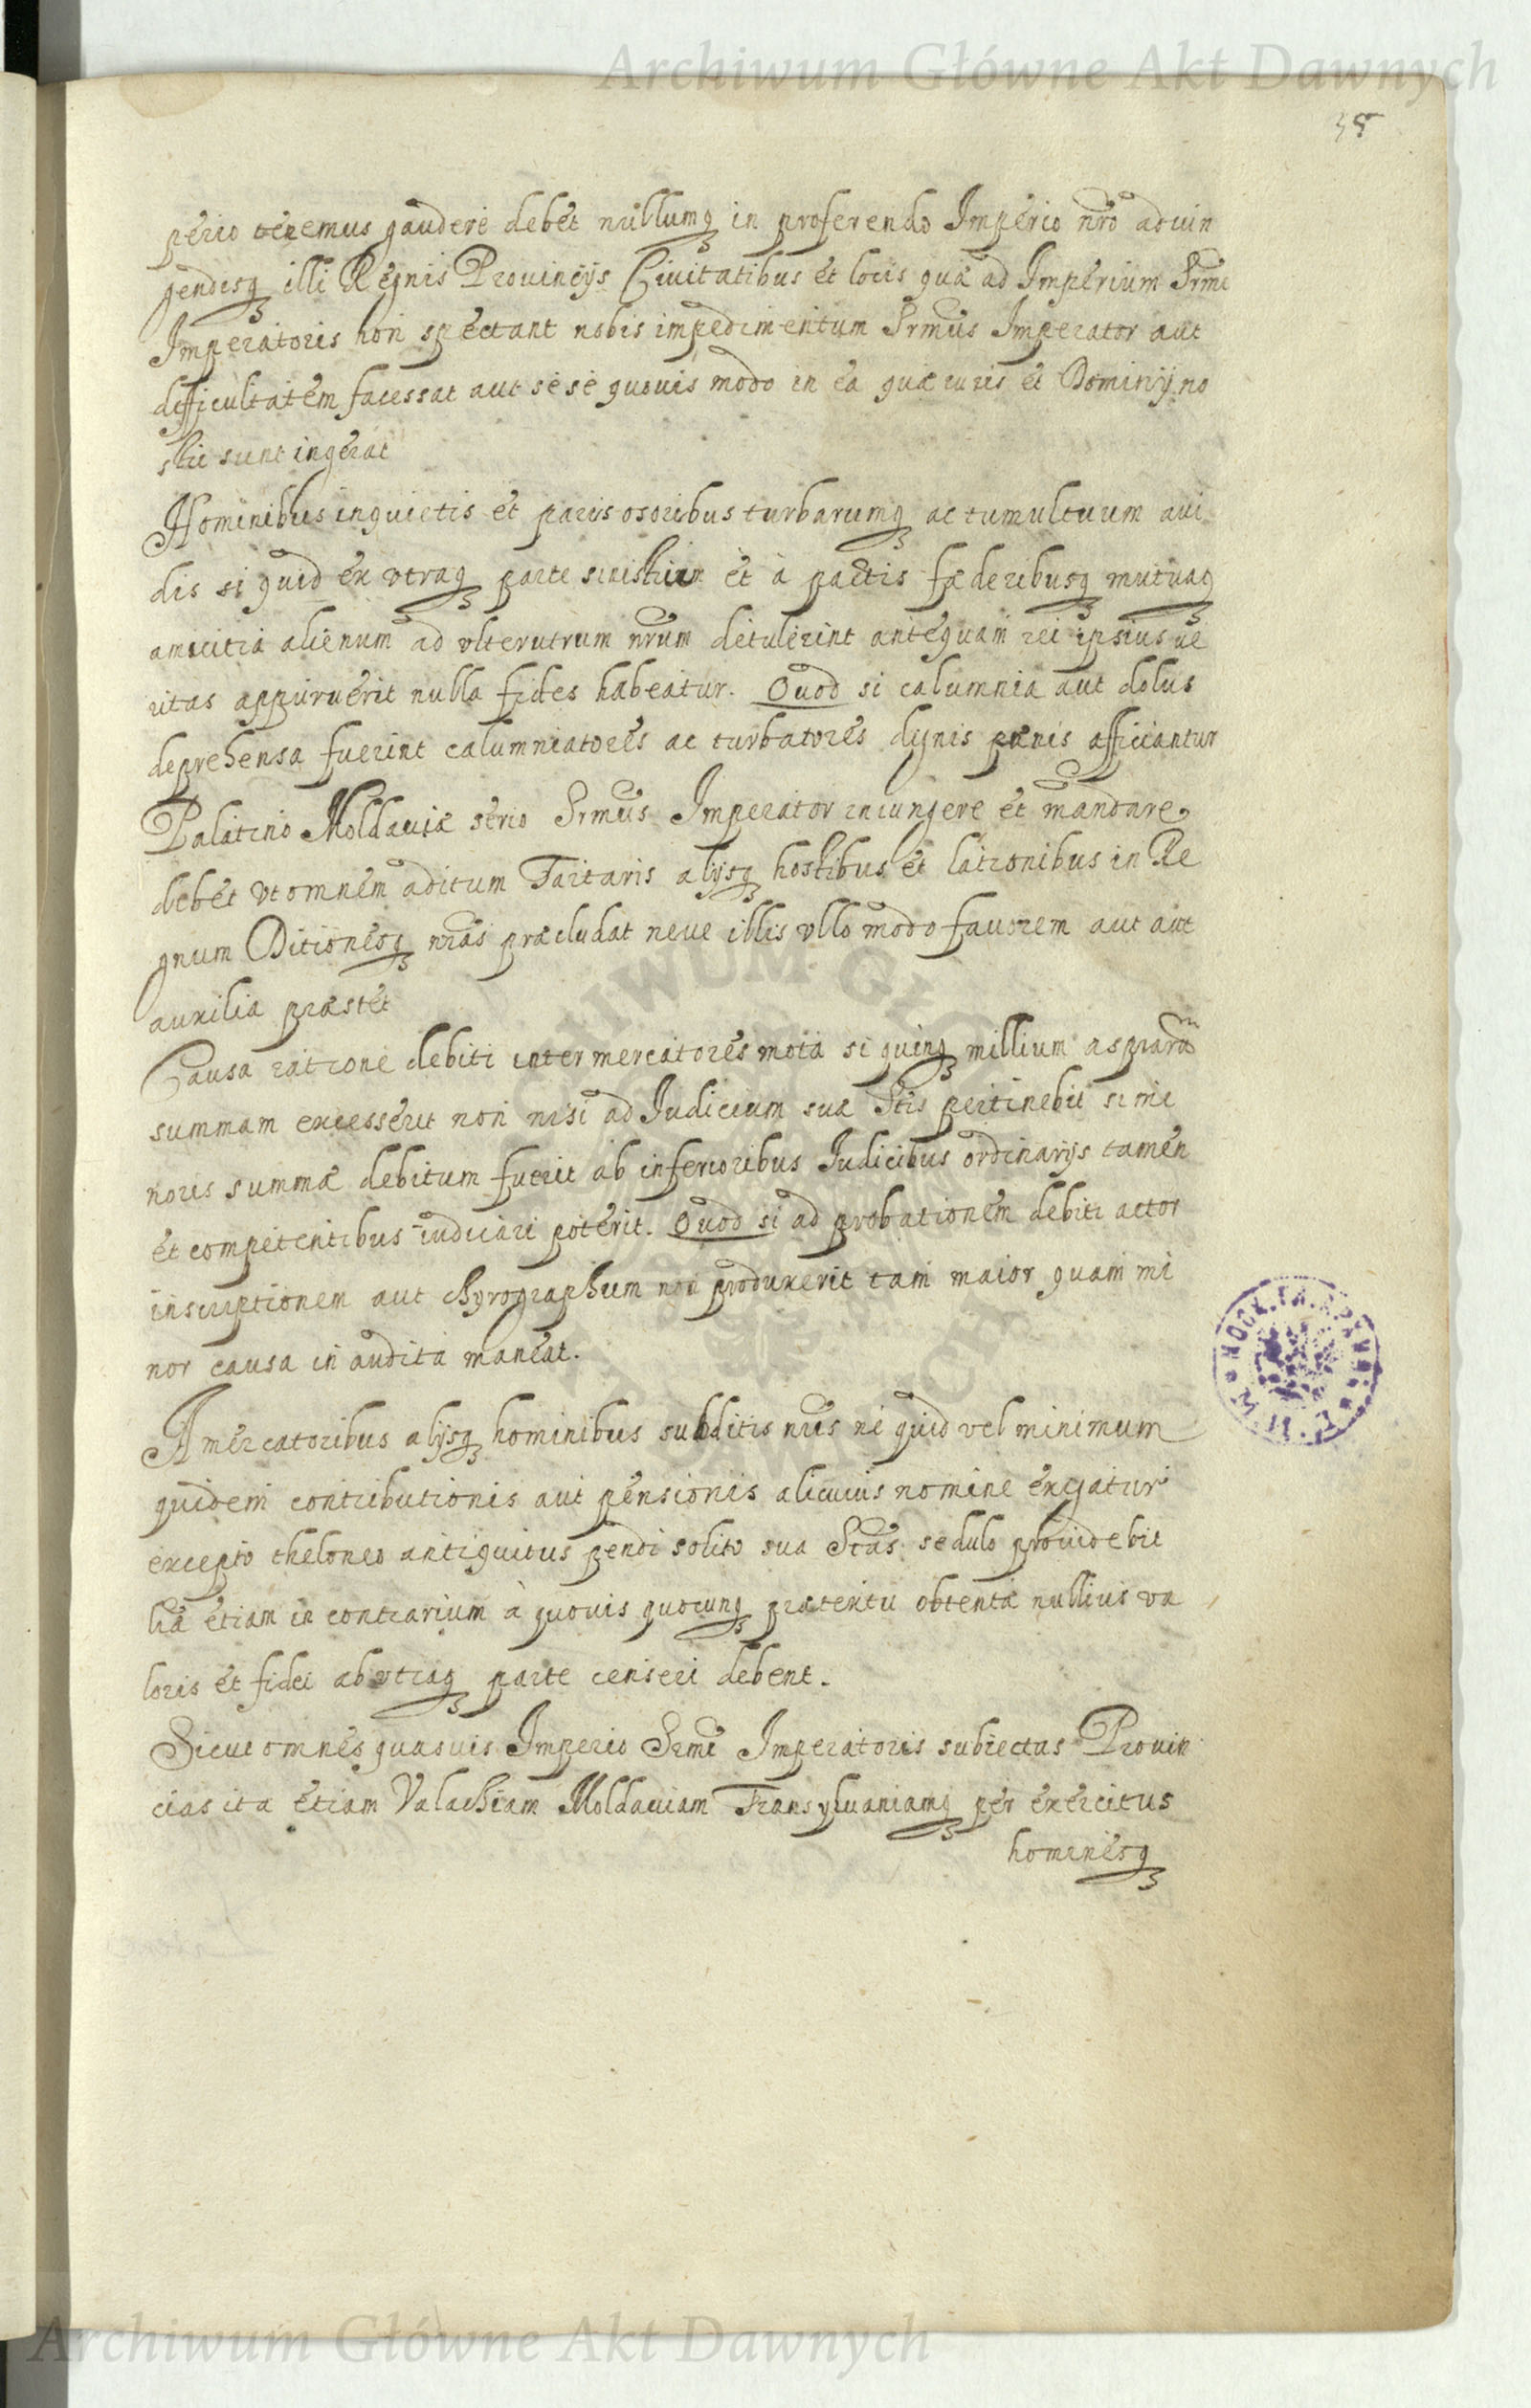 Archiwum Główne Akt Dawnych
perio teremus gaudere debet nullumq in proferendo Imperio nro adiun
gendisq illi Regnis Prouincijs Ciuitatibus et locis quæ ad Imperium Srmi
Imperatoris non spectant nobis impedimentum Srmus Imperator aut
difficultatem facessat aut sese quouis modo in ea quæ iuris et Dominij no
stri sunt ingerat
Hominibus inquietis et pacis osoribus turbarumq ac tumultuum aui
dis si quid ex vtraq parte sinistrum et à pactis fæderibusq mutuaq
amicitia alienum ad vlterutrum nrum detulerint antequam rei ipsius ve
ritas appuruerit nulla fides habeatur. Quod si calumnia aut dolus
deprehensa fuerint calumniatores ac turbatores dignis pænis afficiantur
Palatino Moldauiæ serio Srmus Imperator iniungere et mandare
debet vt omnem aditum Tartaris alijsq hostibus et latronibus in Re
gnum Ditionesq nras præcludat neue illis vllo modo fauorem aut aut
auxilia præstet
Causa ratione debiti inter mercatores mota si quinq millium asprarū
summam excesserit non nisi ad Iudicium suæ Stis pertinebit si mi
noris summæ debitum fuerit ab inferioribus Iudicibus ordinarijs tamen
et competentibus iudicari poterit. Quod si ad probationem debiti actor
inscriptionem aut chyrographum non produxerit tam maior quam mi
nor causa in audita maneat.
A mercatoribus alijsq hominibus subditis nris ne quid vel minimum
quidem contributionis aut pensionis alicuius nomine exigatur
excepto theloneo antiquitus pendi solito sua Stas sedulo prouidebit
liæ etiam in contrarium à quouis quocunq prætextu obtentæ nullius va
loris et fidei ab vtraq parte censeri debent.
Sicut omnes quasuis Imperio Srmi Imperatoris subiectas Prouin
cias ita etiam Valachiam Moldauiam Transyluaniamq per exercitus
hominesq
Archiwum Główne Akt Dawnych